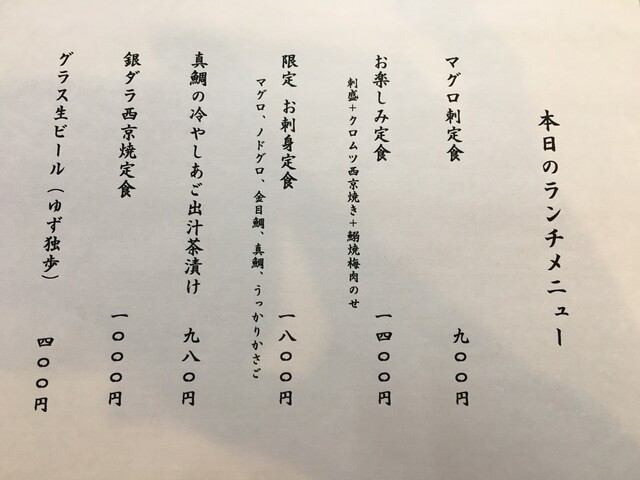 本日のランチメニュー
マグロ刺定食 九〇〇円
お楽しみ定食 一四〇〇円
刺盛+クロムツ西京焼き+鰯焼梅肉のせ
限定 お刺身定食 一八〇〇円
マグロ、ノドグロ、金目鯛、真鯛、うっかりかさご
真鯛の冷やしあご出汁茶漬け 九八〇円
銀ダラ西京焼定食 一〇〇〇円
グラス生ビール(ゆず独歩) 四〇〇円